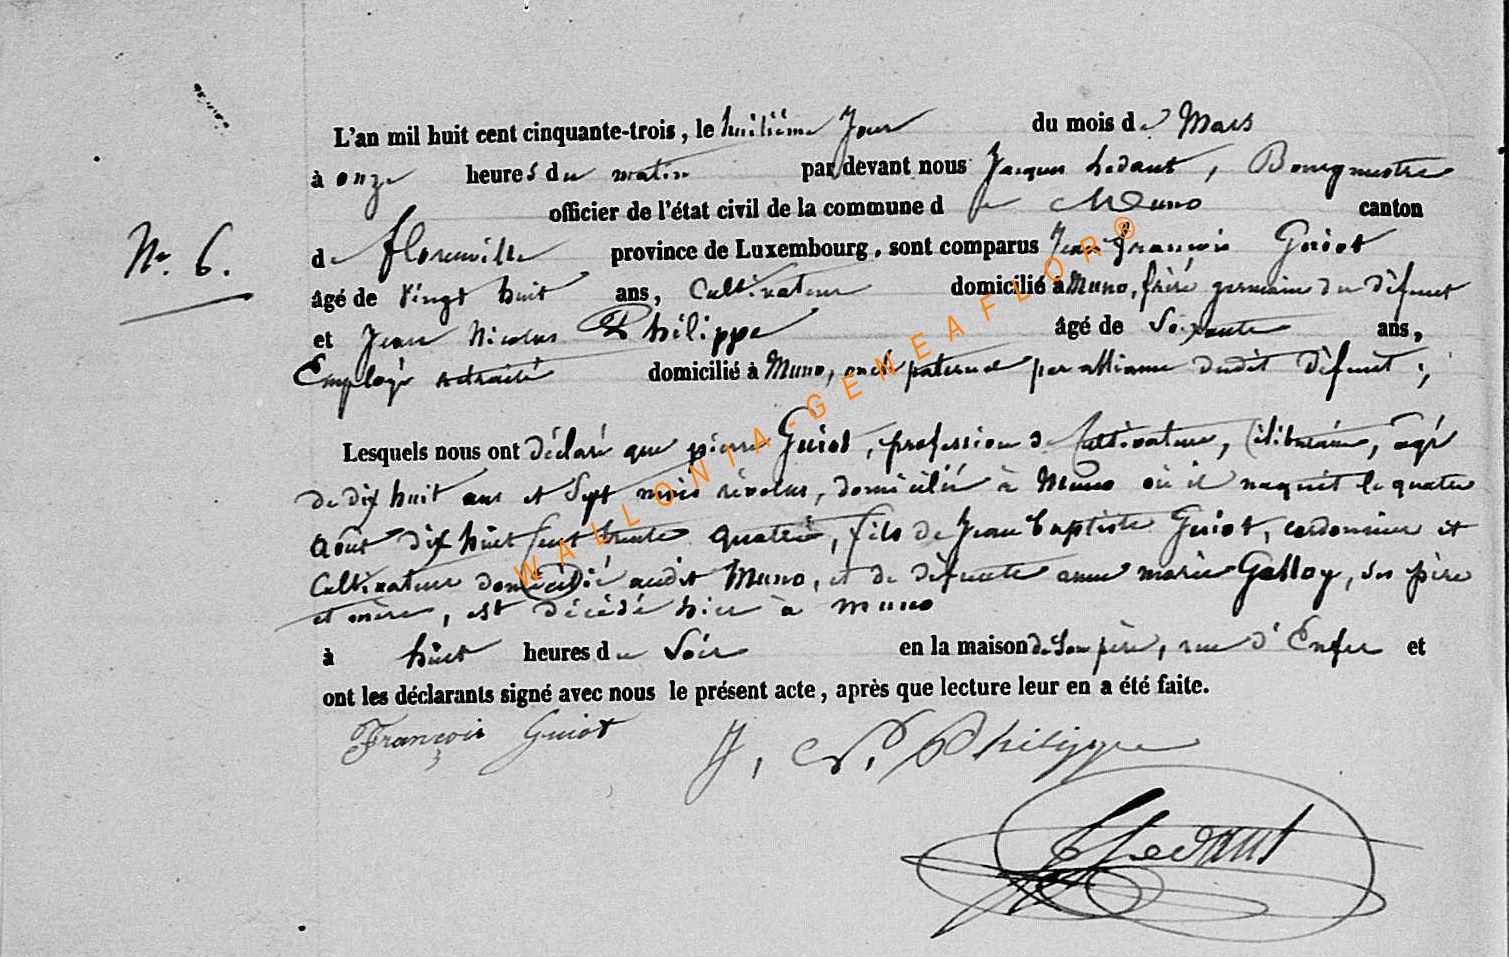 L'an mil huit cent cinquante-trois, le huitième Jour du mois de Mars
à onze heures du matin par devant nous Jacques Ledant, Bourgmestre
officier de l'état civil de la commune de Muno canton
de florenville province de Luxembourg, sont comparus Jean françois Guiot
N° 6.
âgé de vingt huit ans, Cultivateur domicilié à Muno, frère germain du défunt
et Jean Nicolas Philippe âgé de Soixante ans,
Employé retraité domicilié à Muno, oncle paternel par alliance dudit défunt ;
Lesquels nous ont déclaré que pierre Guiot, profession de Cultivateur, Célibataire, agé
de dix huit ans et Sept mois révolus, domicilié à Muno où il naquit le quatre
Août dix huit Cent trente quatre, fils de Jean baptiste Guiot, cordonnier et
Cultivateur domicilié audit Muno, et de défunte anne marie Galloy, ses père
et mère, est décédé hier à muno
à huit heures du Soir en la maison de Son père, rue d'Enfer et
ont les déclarants signé avec nous le présent acte, après que lecture leur en a été faite.
François Guiot J, N, Philippe
J Ledant
WALLONIA-GENEAFLOR®